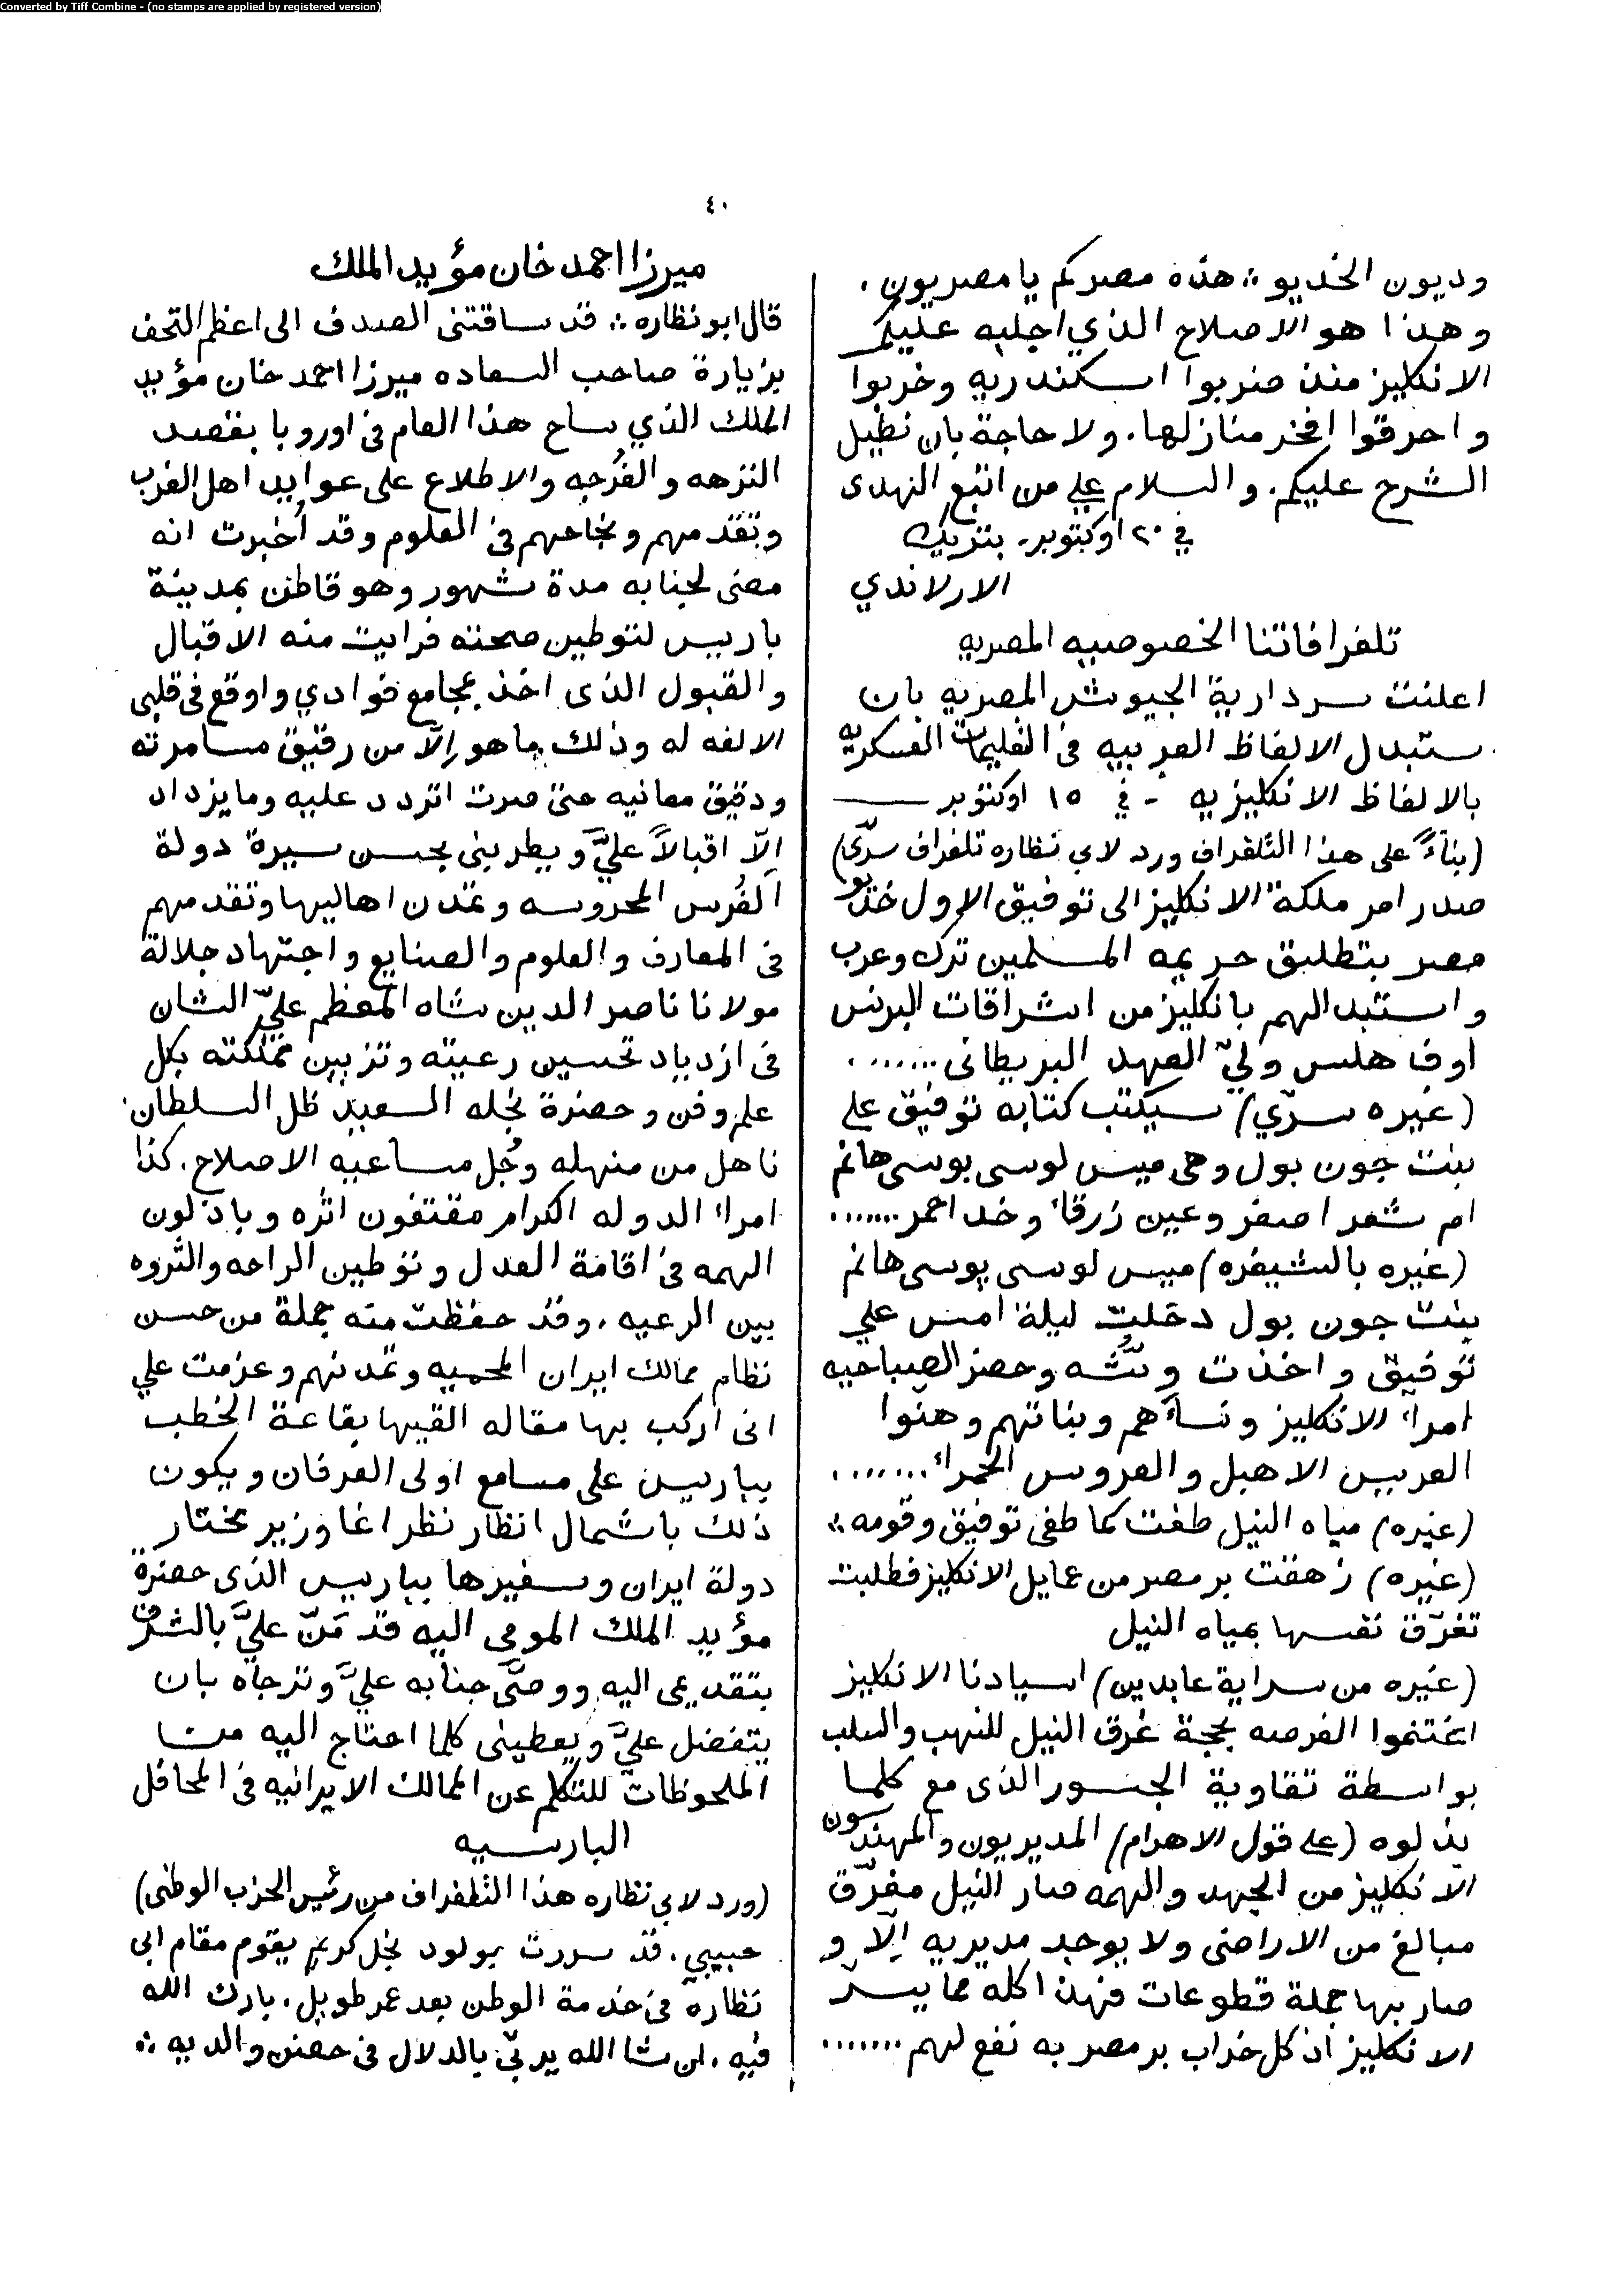 Converted by Tiff Combine - (no stamps are applied by registered version)
٤٠
وديون الخديو ∴ هذه مصركم يا مصريون .
وهذا هو الاصلاح الذي اجلبه عليكم
الانكليز منذ ضربوا اسكندريه وخربوا
واحرقوا افخر منازلها . ولا حاجة بان نطيل
الشرح عليكم . والسلام علي من اتبع الهدى
في ٢٠ اوكتوبر - بتريك
الارلاندي
تلغرافاتنا الخصوصيه المصريه
اعلنت سردارية الجيوش المصريه بان
ستبدل الالفاظ العربيه فى التعليمات العسكريه
بالالفاظ الانكليزيه - في ١٥ اوكتوبر
(بناءً على هذا التلغراف ورد لابي نظاره تلغراف سرّى)
صدر امر ملكة الانكليز الى توفيق الاول خديو
مصر بتطليق حريمه المسلمين ترك وعرب
واستبدالهم بانكليز من اشراقات البرنس
اوف هلس وليّ العهد البريطانى .......
(غيره سرّي) سيكتب كتابه توفيق علي
بنت جون بول وهى ميس لوسى بوسى هانم
ام شعر اصفر وعين زرقاء وخد احمر .......
(غيره بالشيفره) ميس لوسى پوسى هانم
بنت جون بول دخلت ليلة امس علي
توفيق واخذت وشّه وحضر الصباحيه
امراء الانكليز ونساءهم وبناتهم وهنوا
العريس الاهبل والعروس الحمراء .......
(غيره) مياه النيل طفت كما طفى توفيق وقومه ∴
(غيره) زهقت بر مصر من عمايل الانكليز فطلبت
تغرّق نفسها بمياه النيل
(غيره من سراية عابدين) اسيادنا الانكليز
اغتنموا الفرصه بحجة غرق النيل للنهب والسلب
بواسطة تقاوية الجسور الذى مع كلما
بذلوه (علي قول الاهرام) المديريون والمهندسون
الانكليز من الجهد والهمه صار النيل مغرّق
مبالغ من الاراضى ولا يوجد مديريه الّا و
صار بها جملة قطوعات فهذا كله مما يسر
الانكليز اذ كل خراب بر مصر به نفع لهم .......
ميرزا احمد خان مؤيد الملك
قال ابو نظاره ∴ قد ساقتنى الصدف الى اعظم التحف
بزيارة صاحب السعاده ميرزا احمد خان مؤيد
الملك الذي ساح هذا العام فى اوروبا بقصد
النزهه والفُرجه والاطلاع على عوايد اهل الغرب
وتقدمهم ونجاحهم فى العلوم وقد أخبرت انه
مضى لجنابه مدة شهور وهو قاطن بمدينة
باريس لتوطين صحته فرايت منه الاقبال
والقبول الذى اخذ بمجامع فوادي واوقع فى قلبى
الالفه له وذلك ما هو الّا من رقيق مسامرته
ودقيق معانيه حتى صرت اتردد عليه وما يزداد
الّا اقبالاً عليَّ ويطربنى بحسن سيرة دولة
الفُرس المحروسه وتمدن اهاليها وتقدمهم
فى المعارف والعلوم والصنايع واجتهاد جلالة
مولانا ناصر الدين شاه المعظم عليّ الشان
فى ازدياد تحسين رعيته وتزيين مملكته بكل
علم وفن وحضرة نجله السعيد ظل السلطان
ناهل من منهله وجُل مساعيه الاصلاح . كذا
امراء الدوله الكرام مقتفون اثره وباذلون
الهمه فى اقامة العدل وتوطين الراحه والثروه
بين الرعيه . وقد حفظت منه جملة من حسن
نظام ممالك ايران المحميه وتمدنهم وعزمت علي
انى اركب بها مقاله القيها بقاعة الخطب
بباريس على مسامع اولى العرفان ويكون
ذلك باشمال انظار نظر اغا وزير مختار
دولة ايران وسفيرها بباريس الذى حضرة
مؤيد الملك المومى اليه قد مَنّ عليَّ بالشرف
بتقديمى اليه ووصَّى جنابه عليَّ وترجاه بان
يتفضل عليَّ ويعطينى كلما احتاج اليه من
الملحوظات للتكلم عن الممالك الايرانيه فى المحافل
الباريسيه
(ورد لابي نظاره هذا التلغراف من رئيس الحزب الوطنى)
حبيبي . قد سررت بمولود نجل كريم يقوم مقام ابى
نظاره فى خدمة الوطن بعد عمر طويل . بارك الله
فيه . ان شا الله يربّي بالدلال فى حضن والديه ∴